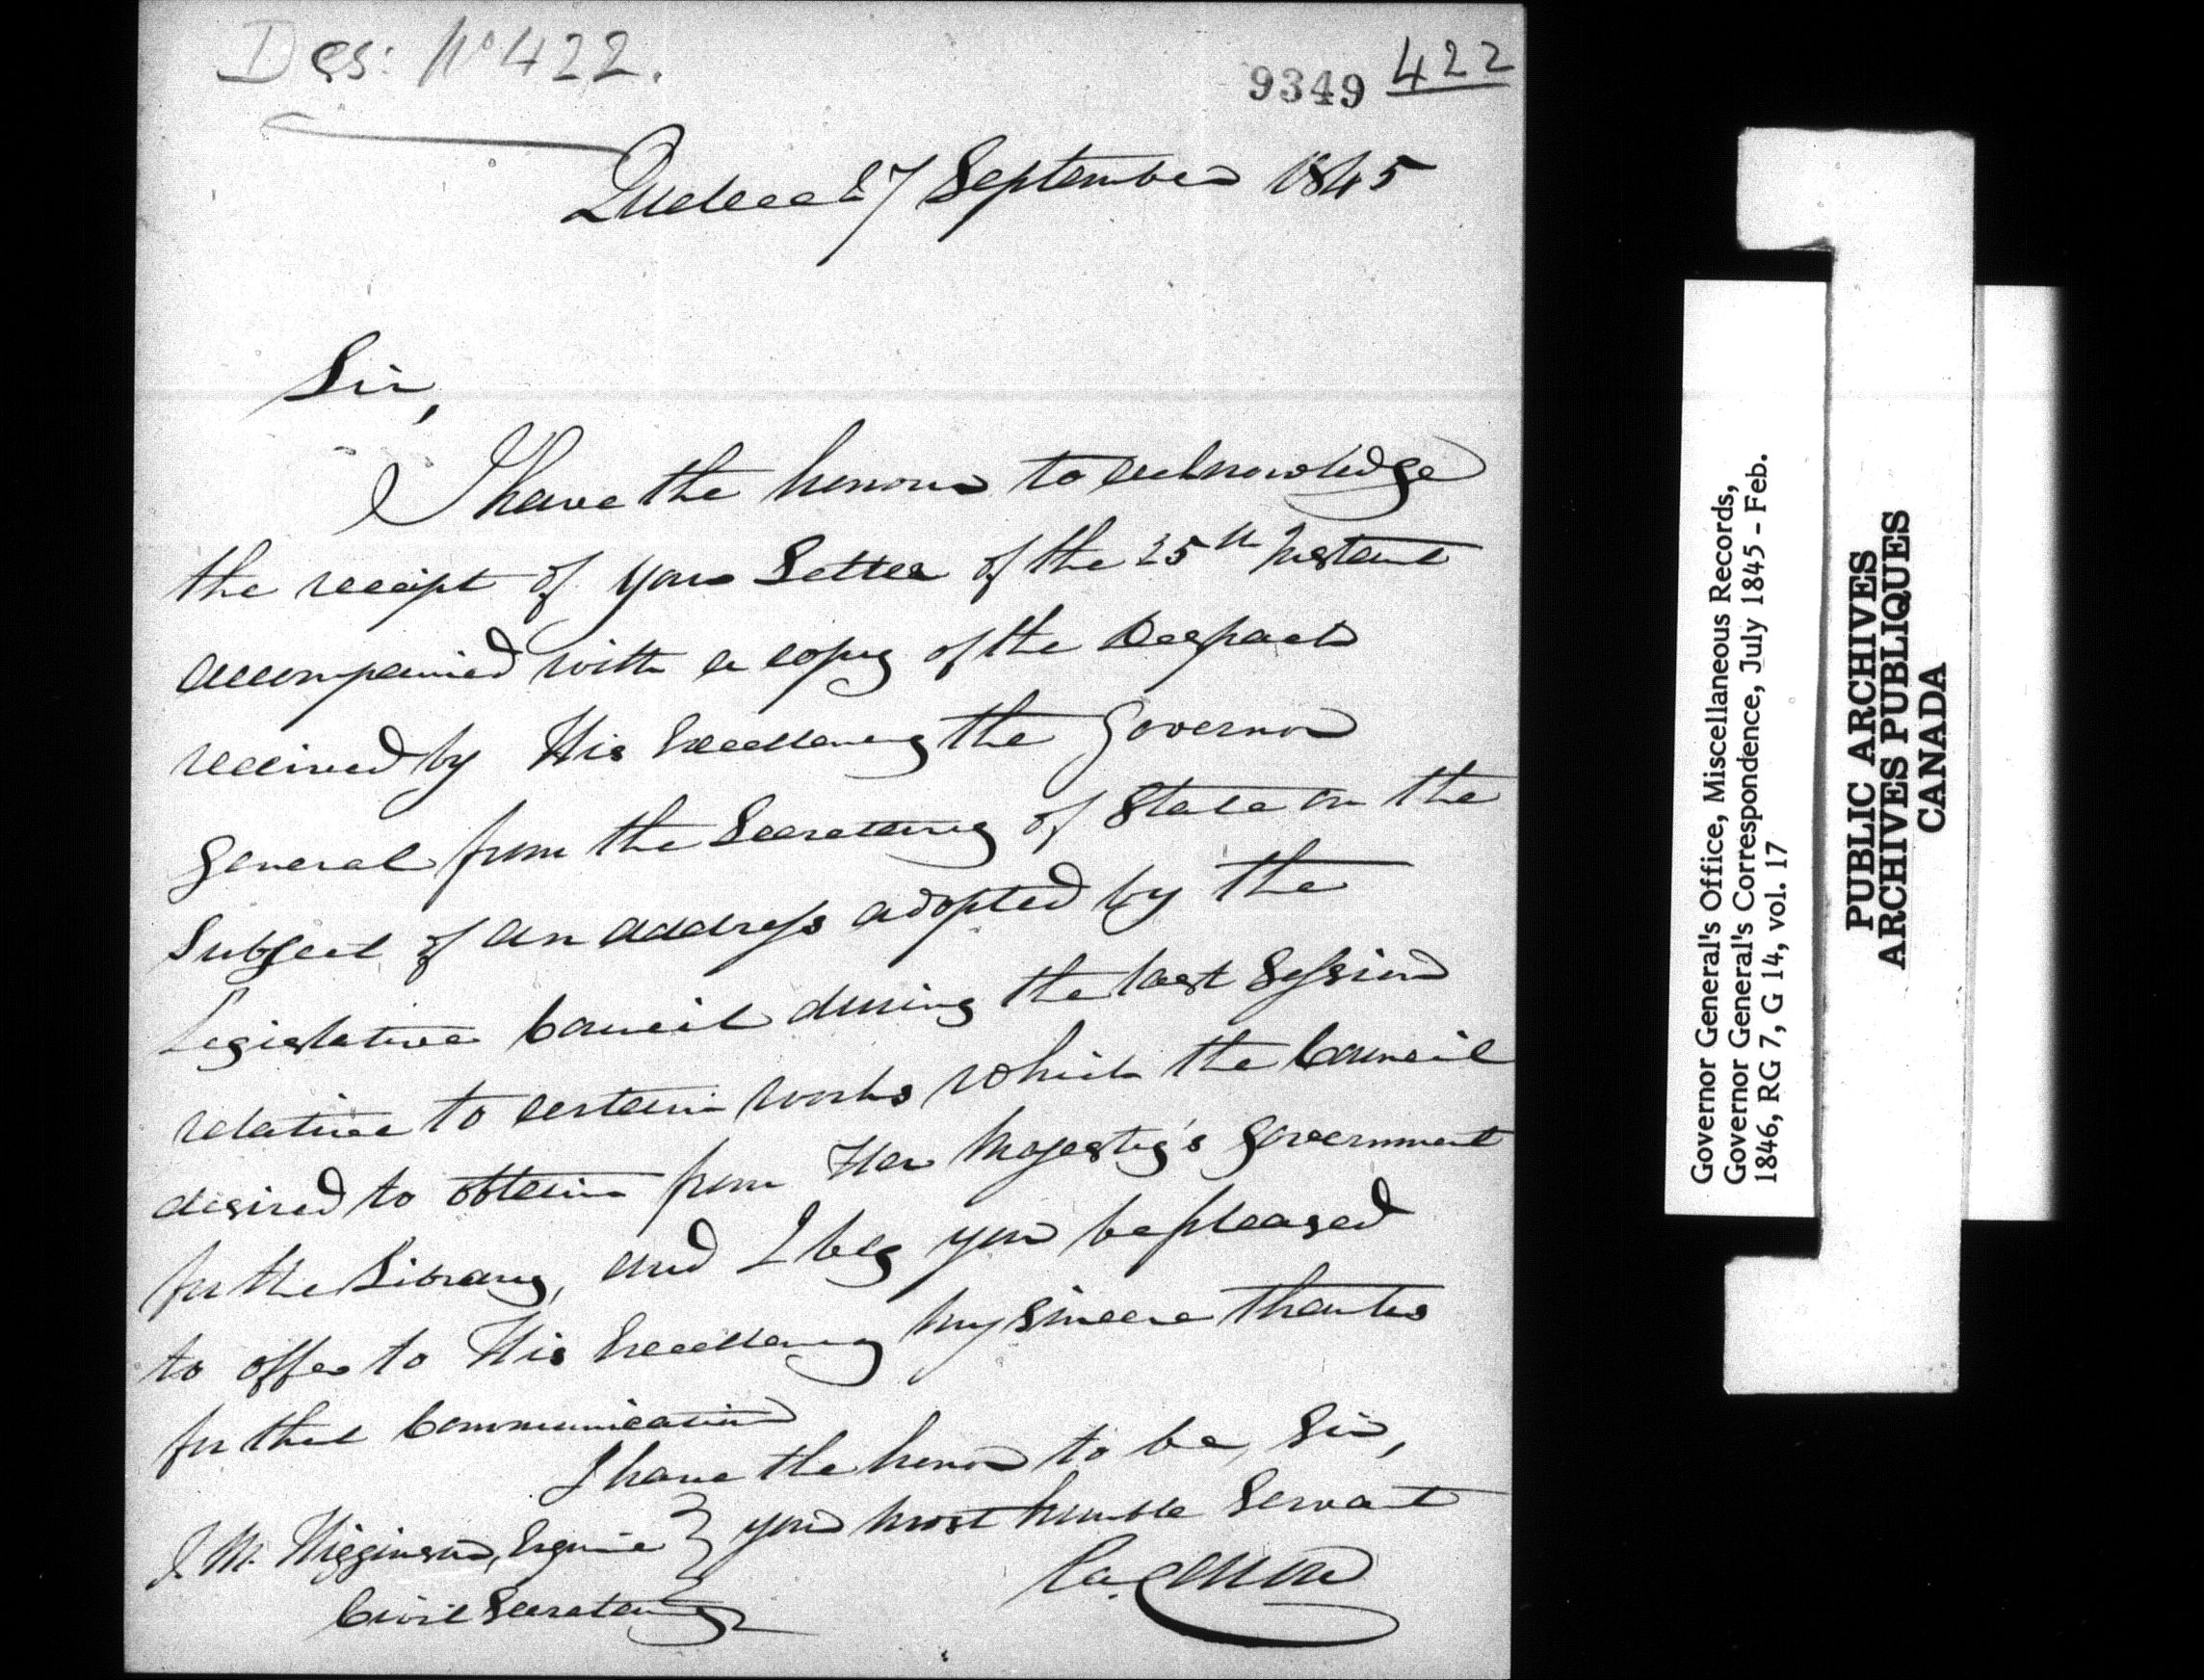 Des: No 422.
9349 422
Quebec 27 September 1845
Sir,
I have the honour to acknowledge
the receipt of your Letter of the 25th Instant
accompanied with a copy of the Despatch
received by His Excellency the Governor
General from the Secretary of State on the
Subject of an address adopted by the
Legislative Council during the last Session
relative to certain works which the Council
desired to obtain from Her Majesty's Government
for the Library, and I beg you be pleased
to offer to His Excellency my sincere thanks
for that Communication
I have the honor to be, Sir,
your most humble Servant
J. M. Higginson, Esquire
Civil Secretary
Governor General's Office, Miscellaneous Records,
Governor General's Correspondence, July 1845 - Feb.
1846, RG 7, G 14, vol. 17
PUBLIC ARCHIVES
ARCHIVES PUBLIQUES
CANADA